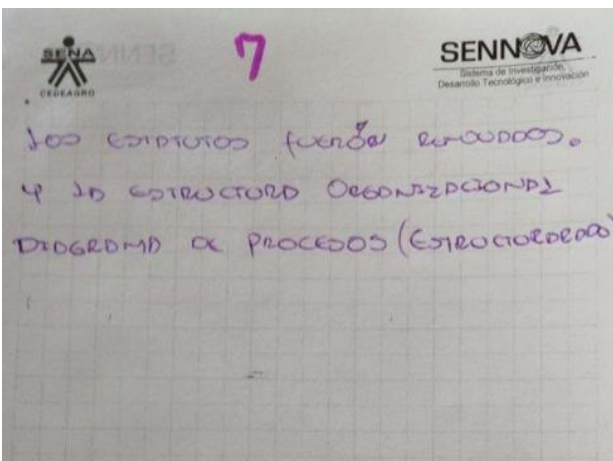 SENA
CEDEAGRO
7
SENNOVA
Sistema de Investigación,
Desarrollo Tecnológico e Innovación
los estatutos fueron
y la estructura organizacional
Diagrama de procesos (estructurado)